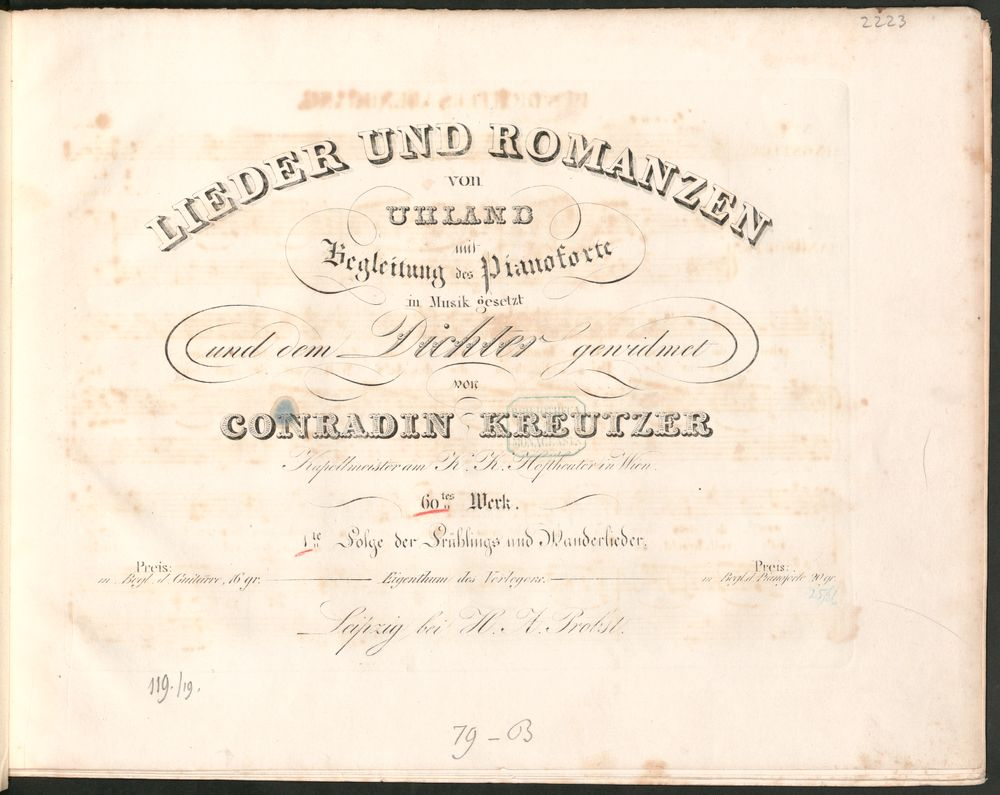 2223
LIEDER UND ROMANZEN
von
UHLAND
mit
Begleitung des Pianoforte
in Musik gesetzt
und dem Dichter gewidmet
von
CONRADIN KREUTZER
Kapellmeister am K. K. Hoftheater in Wien.
60tes Werk.
1te Folge der Frühlings und Wanderlieder.
Preis: Preis:
m. Begl. d. Guitarre, 16 gr. Eigenthum des Verlegers. m. Begl. d. Pianoforte 20 gr.
Leipzig bei H. A. Probst.
119./19.
79 - B